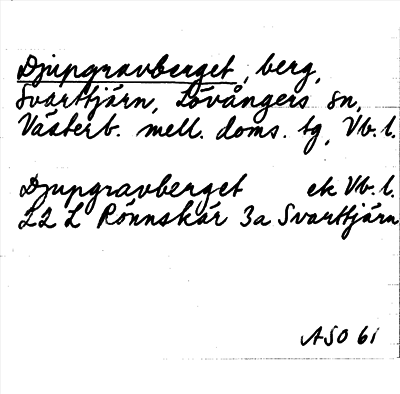 Djupgravberget, berg,
Svarttjärn, Lövångers sn,
Västerb. mell. doms. tg, Vb. l.
Djupgravberget ek Vb. l.
22 L Rönnskär 3a Svarttjärn
ASO 61